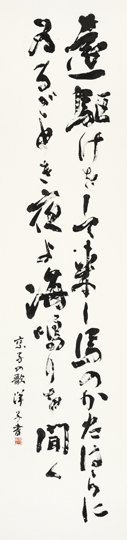 遠駆けをして来し馬のかたはらに
為るがごとき夜よ海鳴りを聞く
京子の歌 洋子書